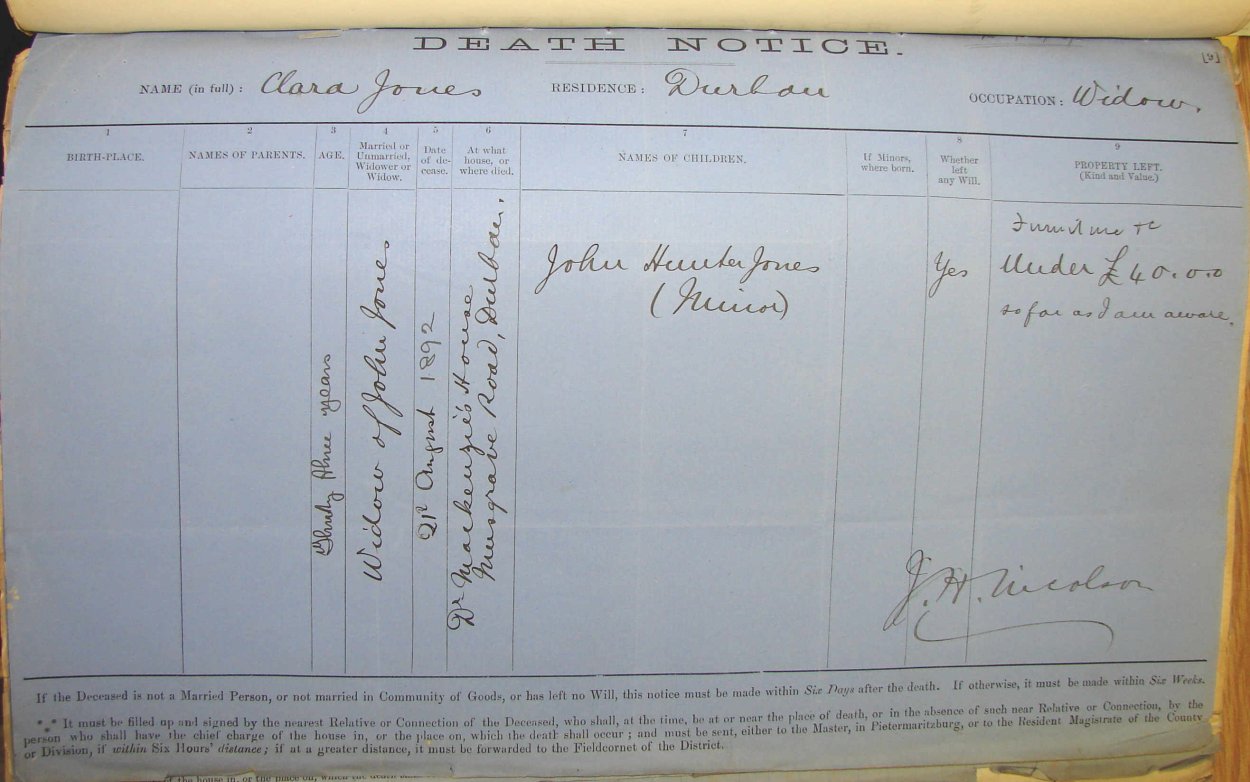 DEATH NOTICE.
[9]
NAME (in full): Clara Jones RESIDENCE: Durban OCCUPATION: Widow.
1 2 3 4 5 6 7 8 9
BIRTH-PLACE.
NAMES OF PARENTS.
AGE.
Married or
Unmarried,
Widower or
Widow.
Date
of de-
cease.
At what
house, or
where died.
NAMES OF CHILDREN.
If Minors,
where born.
Whether
left
any Will.
PROPERTY LEFT.
(Kind and Value.)
Thirty three years
Widow of John Jones
21st August 1892
Dr Mackenzie's House
Musgrave Road, Durban.
John Hunter Jones
(Minor)
Yes
Furniture &c
Under £40.0.0
so far as I am aware.
J. H. Nicolson
If the Deceased is not a Married Person, or not married in Community of Goods, or has left no Will, this notice must be made within Six Days after the death. If otherwise, it must be made within Six Weeks.
*** It must be filled up and signed by the nearest Relative or Connection of the Deceased, who shall, at the time, be at or near the place of death, or in the absence of such near Relative or Connection, by the
person who shall have the chief charge of the house in, or the place on, which the death shall occur; and must be sent, either to the Master, in Pietermaritzburg, or to the Resident Magistrate of the County
or Division, if within Six Hours' distance; if at a greater distance, it must be forwarded to the Fieldcornet of the District.